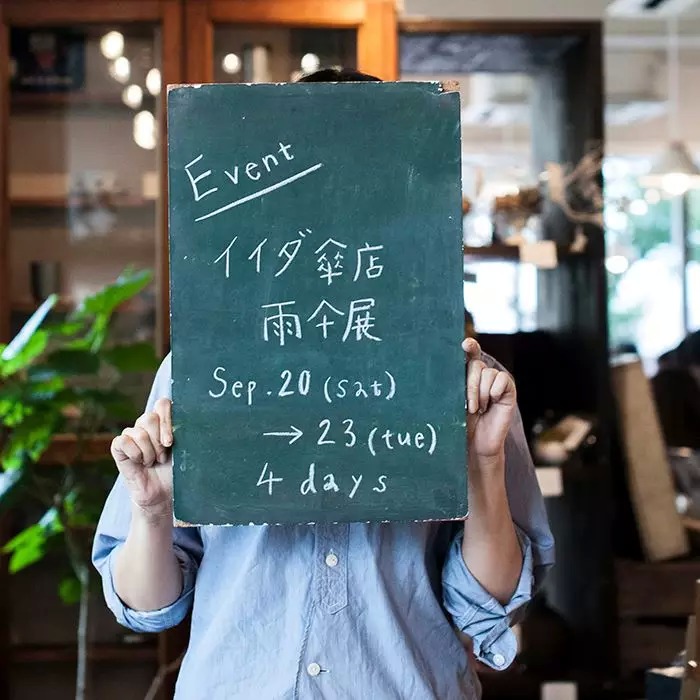 Event
イイダ傘店
雨仐展
Sep. 20 (sat)
→ 23 (tue)
4 days